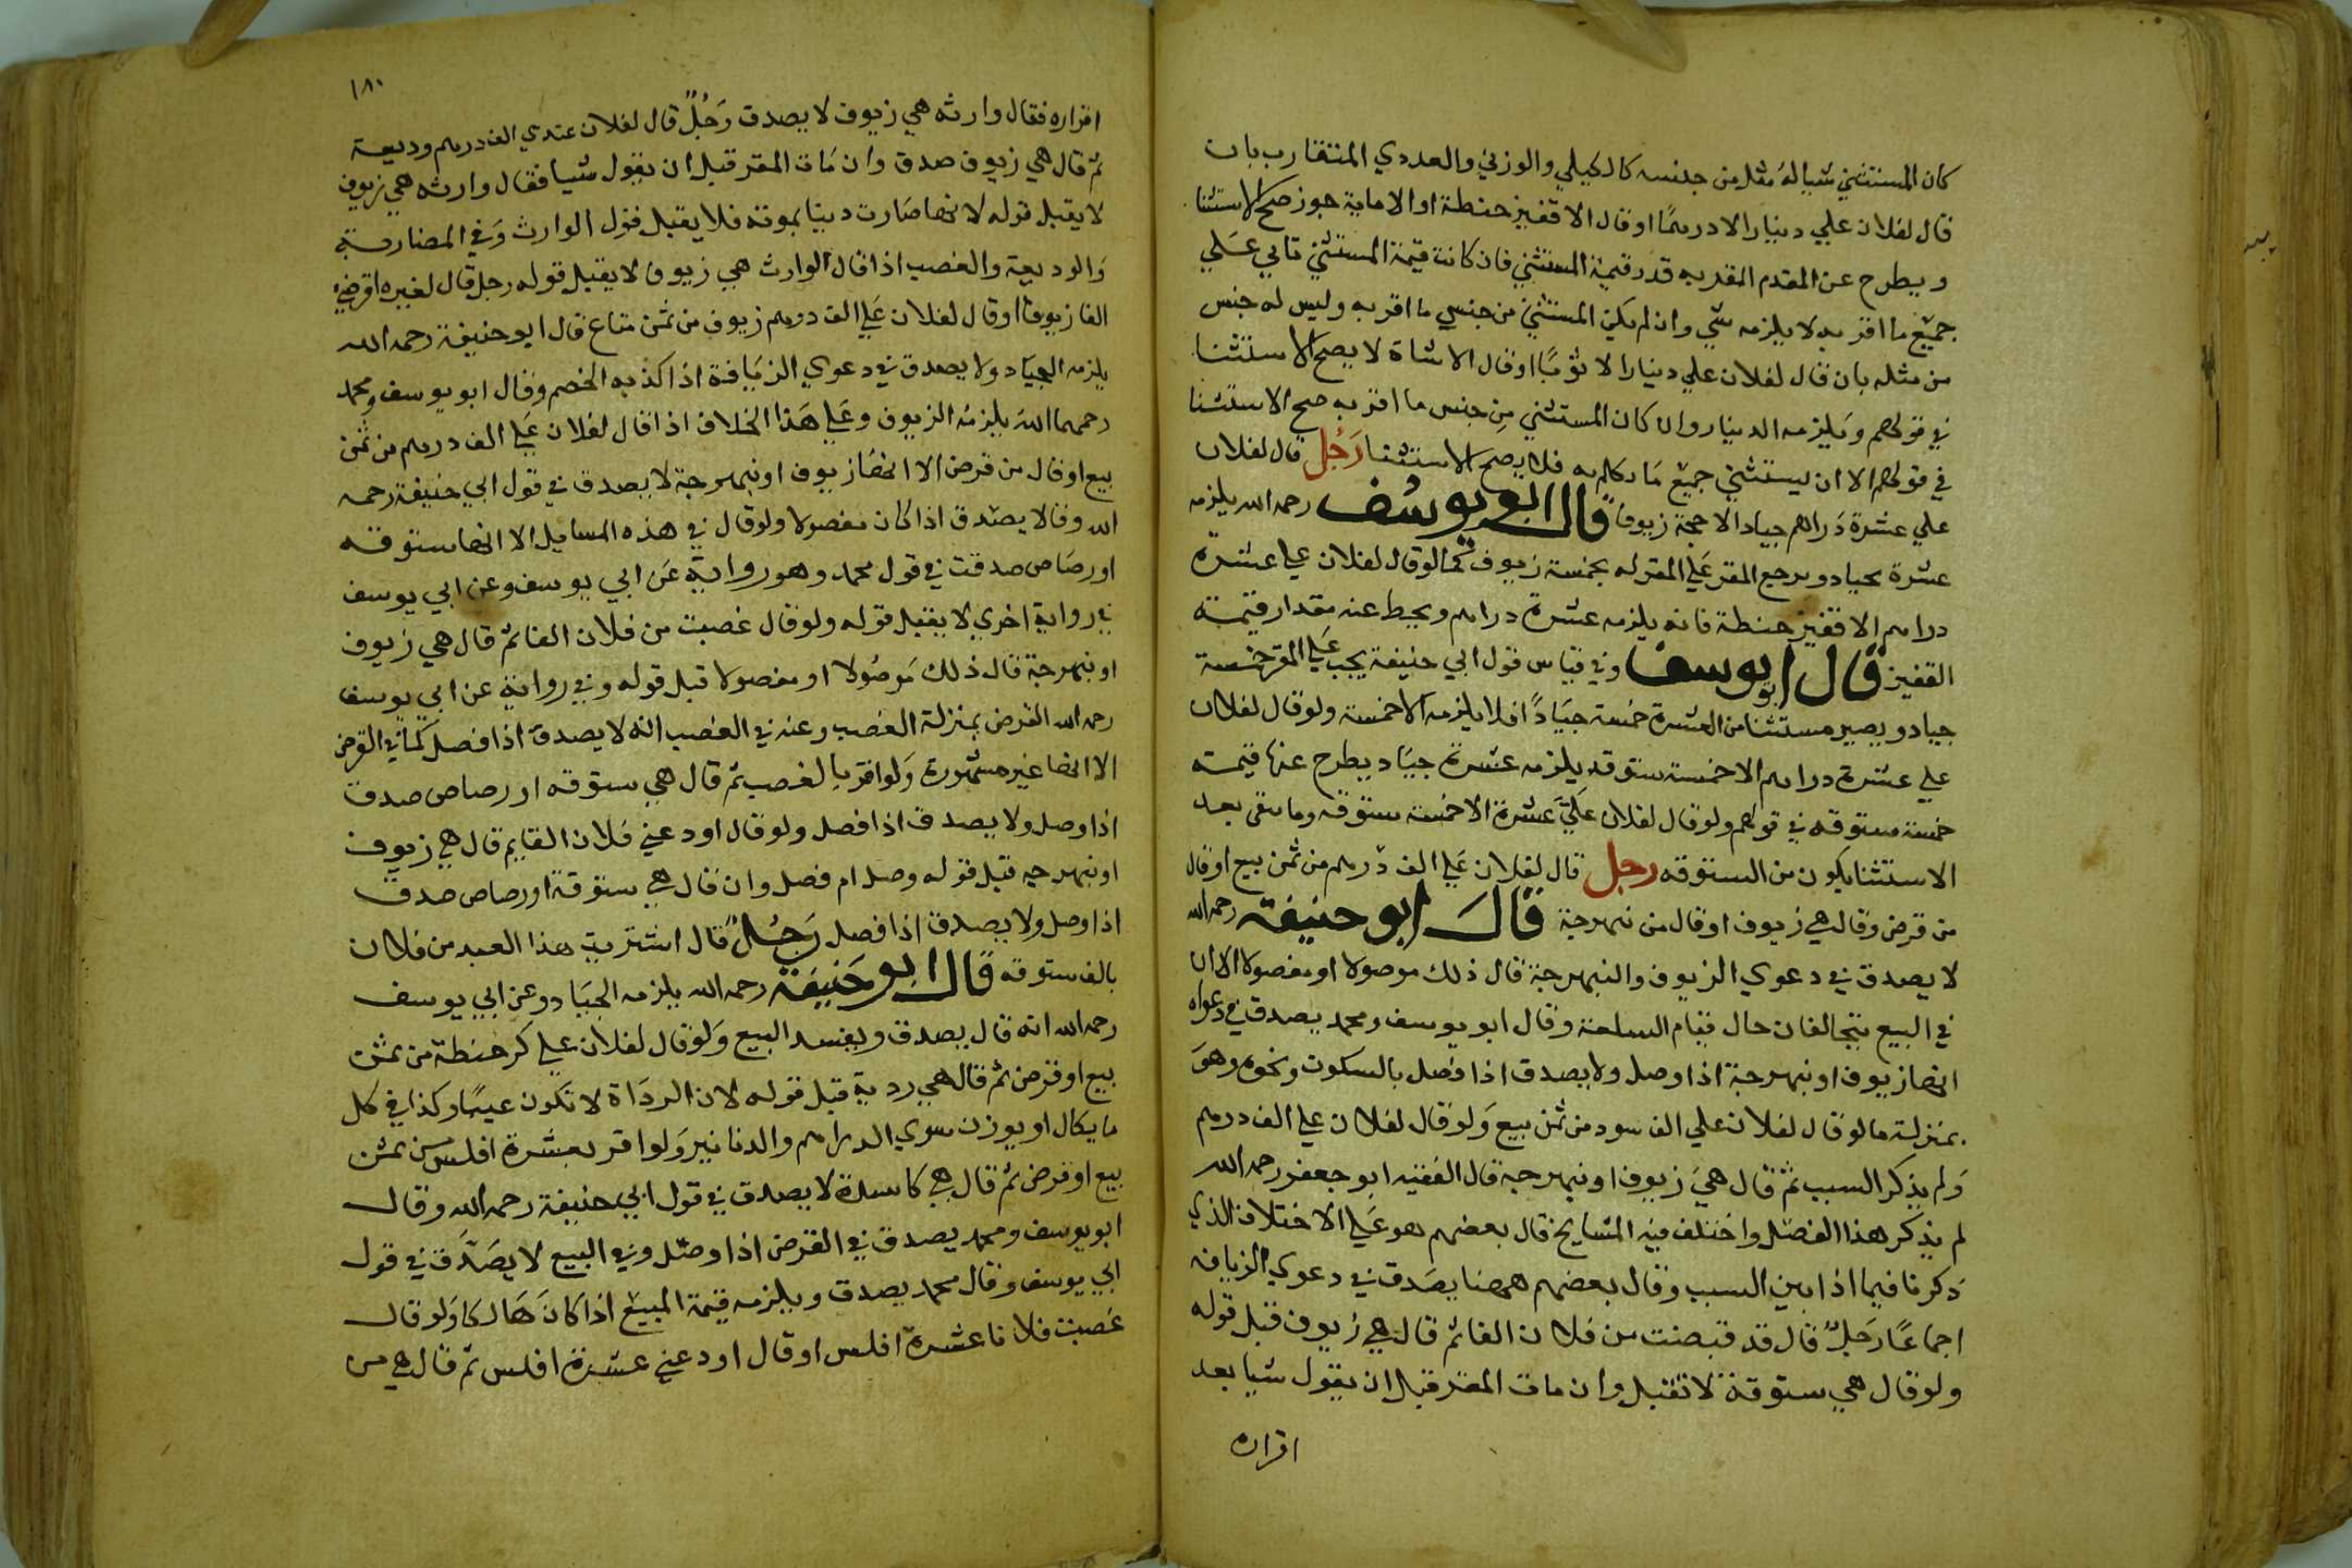 كان المستثني شيا له مثل من جنسه كالكيلي والوزني والعددي المتقارب بان
قال لفلان علي دينار الا درهمًا او قال الا قفيز حنطة او الا ماية جوز صح الاستثنا
ويطرح عن المقدم المقر به قدر قيمة المستثني فان كانت قيمة المستثني تاتي علي
جميع ما اقر به لا يلزمه شي وان لم يكن المستثني من جنس ما اقر به وليس له جنس
من مثله بان قال لفلان علي دينار الا ثوبًا او قال الا شاة لا يصح الاستثنا
في قولهم ويلزمه الدينار والا كان المستثني من جنس ما اقر به صح الاستثنا
في قولهم الا ان يستثني جميع ما تكلم به فلا يصح الاستثنا رَجُل قال لفلان
علي عشرة دَراهم جياد الا خمسة زيوفا قال ابو يوسُف رحمه الله يلزمه
عشرة جياد ويرجع المقر عَلي المقر له بخمسة زيوف كما لو قال لفلان علي عشرة
دراهم الا قفيز حنطة فانه يلزمه عشرة دراهم ويحط عنه مقدار قيمة
القفيز قال ابو يوسف وفي قياس قول ابي حنيفة يجب عَلي المقر خمسة
جياد ويصير مستثنا من العشرة خمسة جيَادًا فلا يلزمه الا خمسة ولو قال لفلان
علي عشرة دراهم الا خمسة ستوقه يلزمه عشرة جيَاد ويطرح عنها قيمة
خمسة ستوقه في قولهم ولو قال لفلان عَليَّ عشرة الا خمسة ستوقه وما بقي بعد
الاستثنا يكون من الستوقه رجل قال لفلان عَلي الف درهم من ثمن بيع او قال
من قرض وقال هي زيوف او قال من نبهرجة قالَ ابو حنيفة رحمه الله
لا يصدق في دعوي الزيوف والنبهرجة قال ذلك موصولا او مفصولا الا ان
في البيع يتحالفان حال قيام السلعة وقال ابو يوسف ومحمد يصدق في دعواه
انها زيوف او نبهرجة اذا وصل ولا يصدق اذا فصل بالسكوت ونحوه وهوَ
بمنزلة ما لو قال لفلان علي الف سود من ثمن بيع وَلو قال لفلان علي الف درهم
وَلم يذكر السبب ثم قال هيَ زيوف او نبهرجة قال الفقيه ابو جعفر رحمه الله
لم يذكر هذا الفصَل واختلف فيه المشايخ قال بعضهم هو عَلي الاختلاف الذي
ذكرنا فيما اذا بين السبب وقال بعضهم ههنا يصَدق في دعوي الزيافه
اجماعًا رَجَلٌ قال قد قبضت من فلان الفا ثم قال هي زيوف قبل قوله
ولو قال هي ستوقة لا تقبل وان مات المقر قبل ان يقول شيا بعد
اقراره
١٨٠
اقراره فقال وارثه هي زيوف لا يصدق رَجُلٌ قال لفلان عندي الف درهم وديعة
ثم قال هي زيوف صدق وان مَات المقر قبل ان يقول شيا فقال وارثه هي زيوف
لا يقبل قوله لانها صَارت دينا بموته فلا يقبل قول الوارث وَفي المضاربة
وَالوديعة والغصب اذا قال الوارث هي زيوف لا يقبل قوله رجل قال لغيره اقرضني
الفا زيوفا او قال لفلان عَلي الف درهم زيوف من ثمن متاع قال ابو حنيفة رحمه الله
يلزمه الجيَاد ولا يصدق في دعوي الزيَافة اذا كذبه الخصم وقال ابو يوسف ومحمد
رحمهما الله يلزمه الزيوف وعَلي هَذا الخلاف اذا قال لفلان عَلي الف درهم من ثمن
بيع او قال من قرض الا انها زيوف او نبهرجة لا يصدق في قول ابي حنيفة رحمه
الله وقالا يصَدق اذا كان مفصولا ولو قال في هذه المسايل الا انها ستوقه
او رصَاص صدقت في قول محمد وهو رواية عَن ابي يوسف وعن ابي يوسف
في رواية اخري لا يقبل قوله ولو قال غصبت من فلان الفا ثم قال هي زيوف
او نبهرجة قال ذلك مَوصُولا او مفصولا قبل قوله وفي رواية عن ابي يوسف
رحمه الله القرض بمنزلة الغصب وعنه في الغصب انه لا يصدق اذا فصل كما في القرض
الا انها غير مشهورة وَلو اقر بالغصب ثم قال هي ستوقه او رصاص صدق
اذا وصل ولا يصدق اذا فصل ولو قال اودعني فلان الفا ثم قال هي زيوف
او نبهرجه قبل قوله وصل ام فصل وان قال هي ستوقة او رصاص صدق
اذا وصل ولا يصدق اذا فصل رَجُلٌ قال اشتريت هذا العبد من فلان
بالف ستوقه قال ابو حَنيفَة رحمه الله يلزمه الجيَاد وعن ابي يوسف
رحمه الله انه قال يصدق ويفسد البيع وَلو قال لفلان علي كر حنطة من ثمن
بيع او قرض ثم قال هي ردية قبل قوله لان الردَاة لا تكون عيبًا وكذا في كل
ما يكال او يوزن سوي الدراهم والدنانير وَلو اقر بعشرة افلس من ثمن
بيع او قرض ثم قال هي كاسدة لا يصدق في قول ابي حنيفة رحمه الله وقال
ابو يوسف ومحمد يصدق في القرض اذا وصَل وفي البيع لا يصَدَّق في قول
ابي يوسف وقال محمد يصدق ويلزمه قيمة المبيع اذا كانَ هَالكا وَلو قال
غصبت فلانا عشرة افلس او قال اودعني عشرة افلس ثم قال هي من